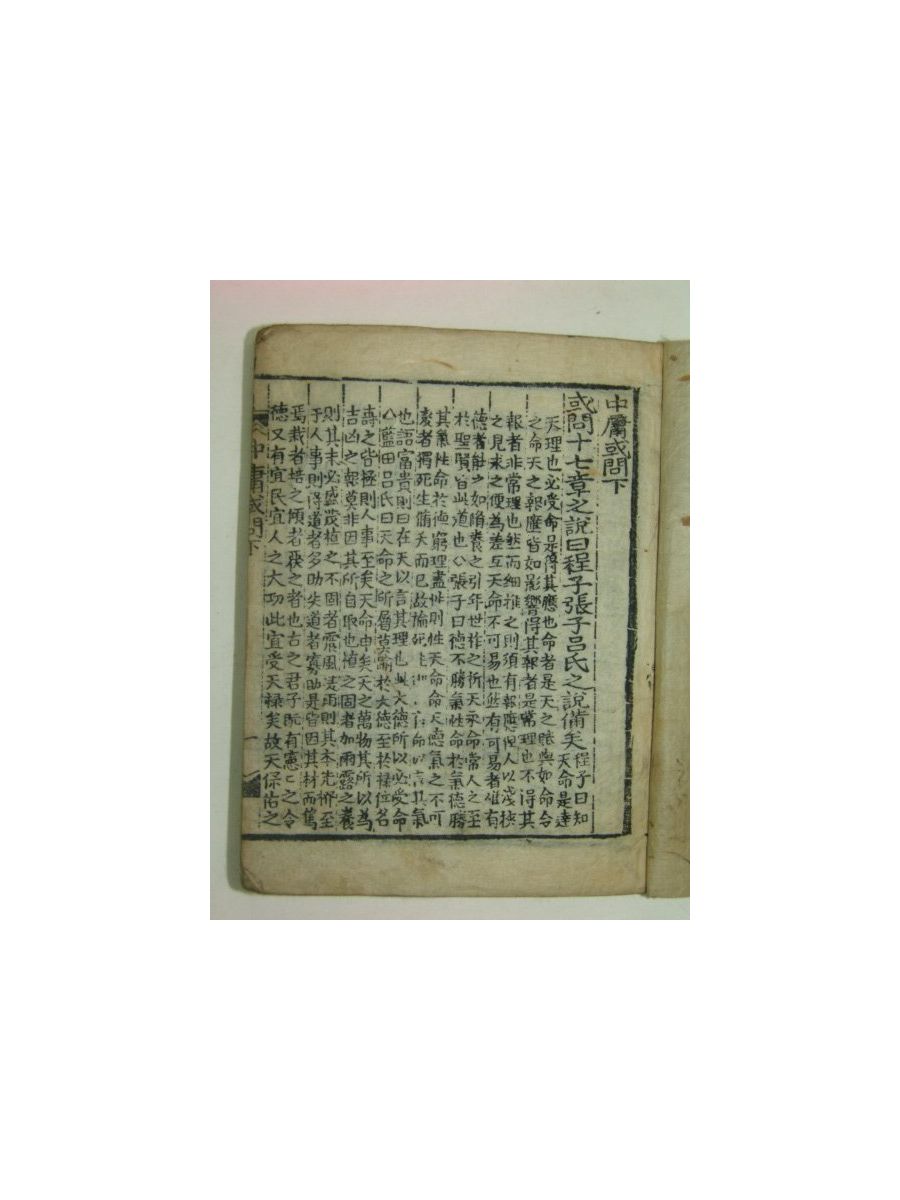 中庸或問下
或問十七章之說曰程子張子呂氏之說備矣程子曰知天命是達
天理也必受命是得其應也命者是天之賦與如命令
之命天之報應皆如影響得其報者是常理也不得其
報者非常理也然而細推之則須有報應但人以淺狹
之見求之便為差互天命不可易也然有可易者雖有
德者能之如脩養之引年世祚之祈天永命常人之至
於聖賢皆此道也張子曰德不勝氣性命於氣德勝
其氣性命於德窮理盡性則性天命命天德氣之不可
變者獨死生脩夭而已故論死生則曰有命以言其氣
也語富貴則曰在天以言其理也此大德所以必受命
藍田呂氏曰天命之所屬莫踰於大德至於祿位名
壽之皆極則人事至矣天命申矣天之萬物其所以為
吉凶之報莫非因其所自取也植之固者加雨露之養
則其末必盛茂植之不固者震風凌雨則其本先撥至
于人事則得道者多助失道者寡助是皆因其材而篤
焉栽者培之傾者覆之者也古之君子旣有憲憲之令
德又有宜民宜人之大功此宜受天祿矣故天保佑之
中庸或問下